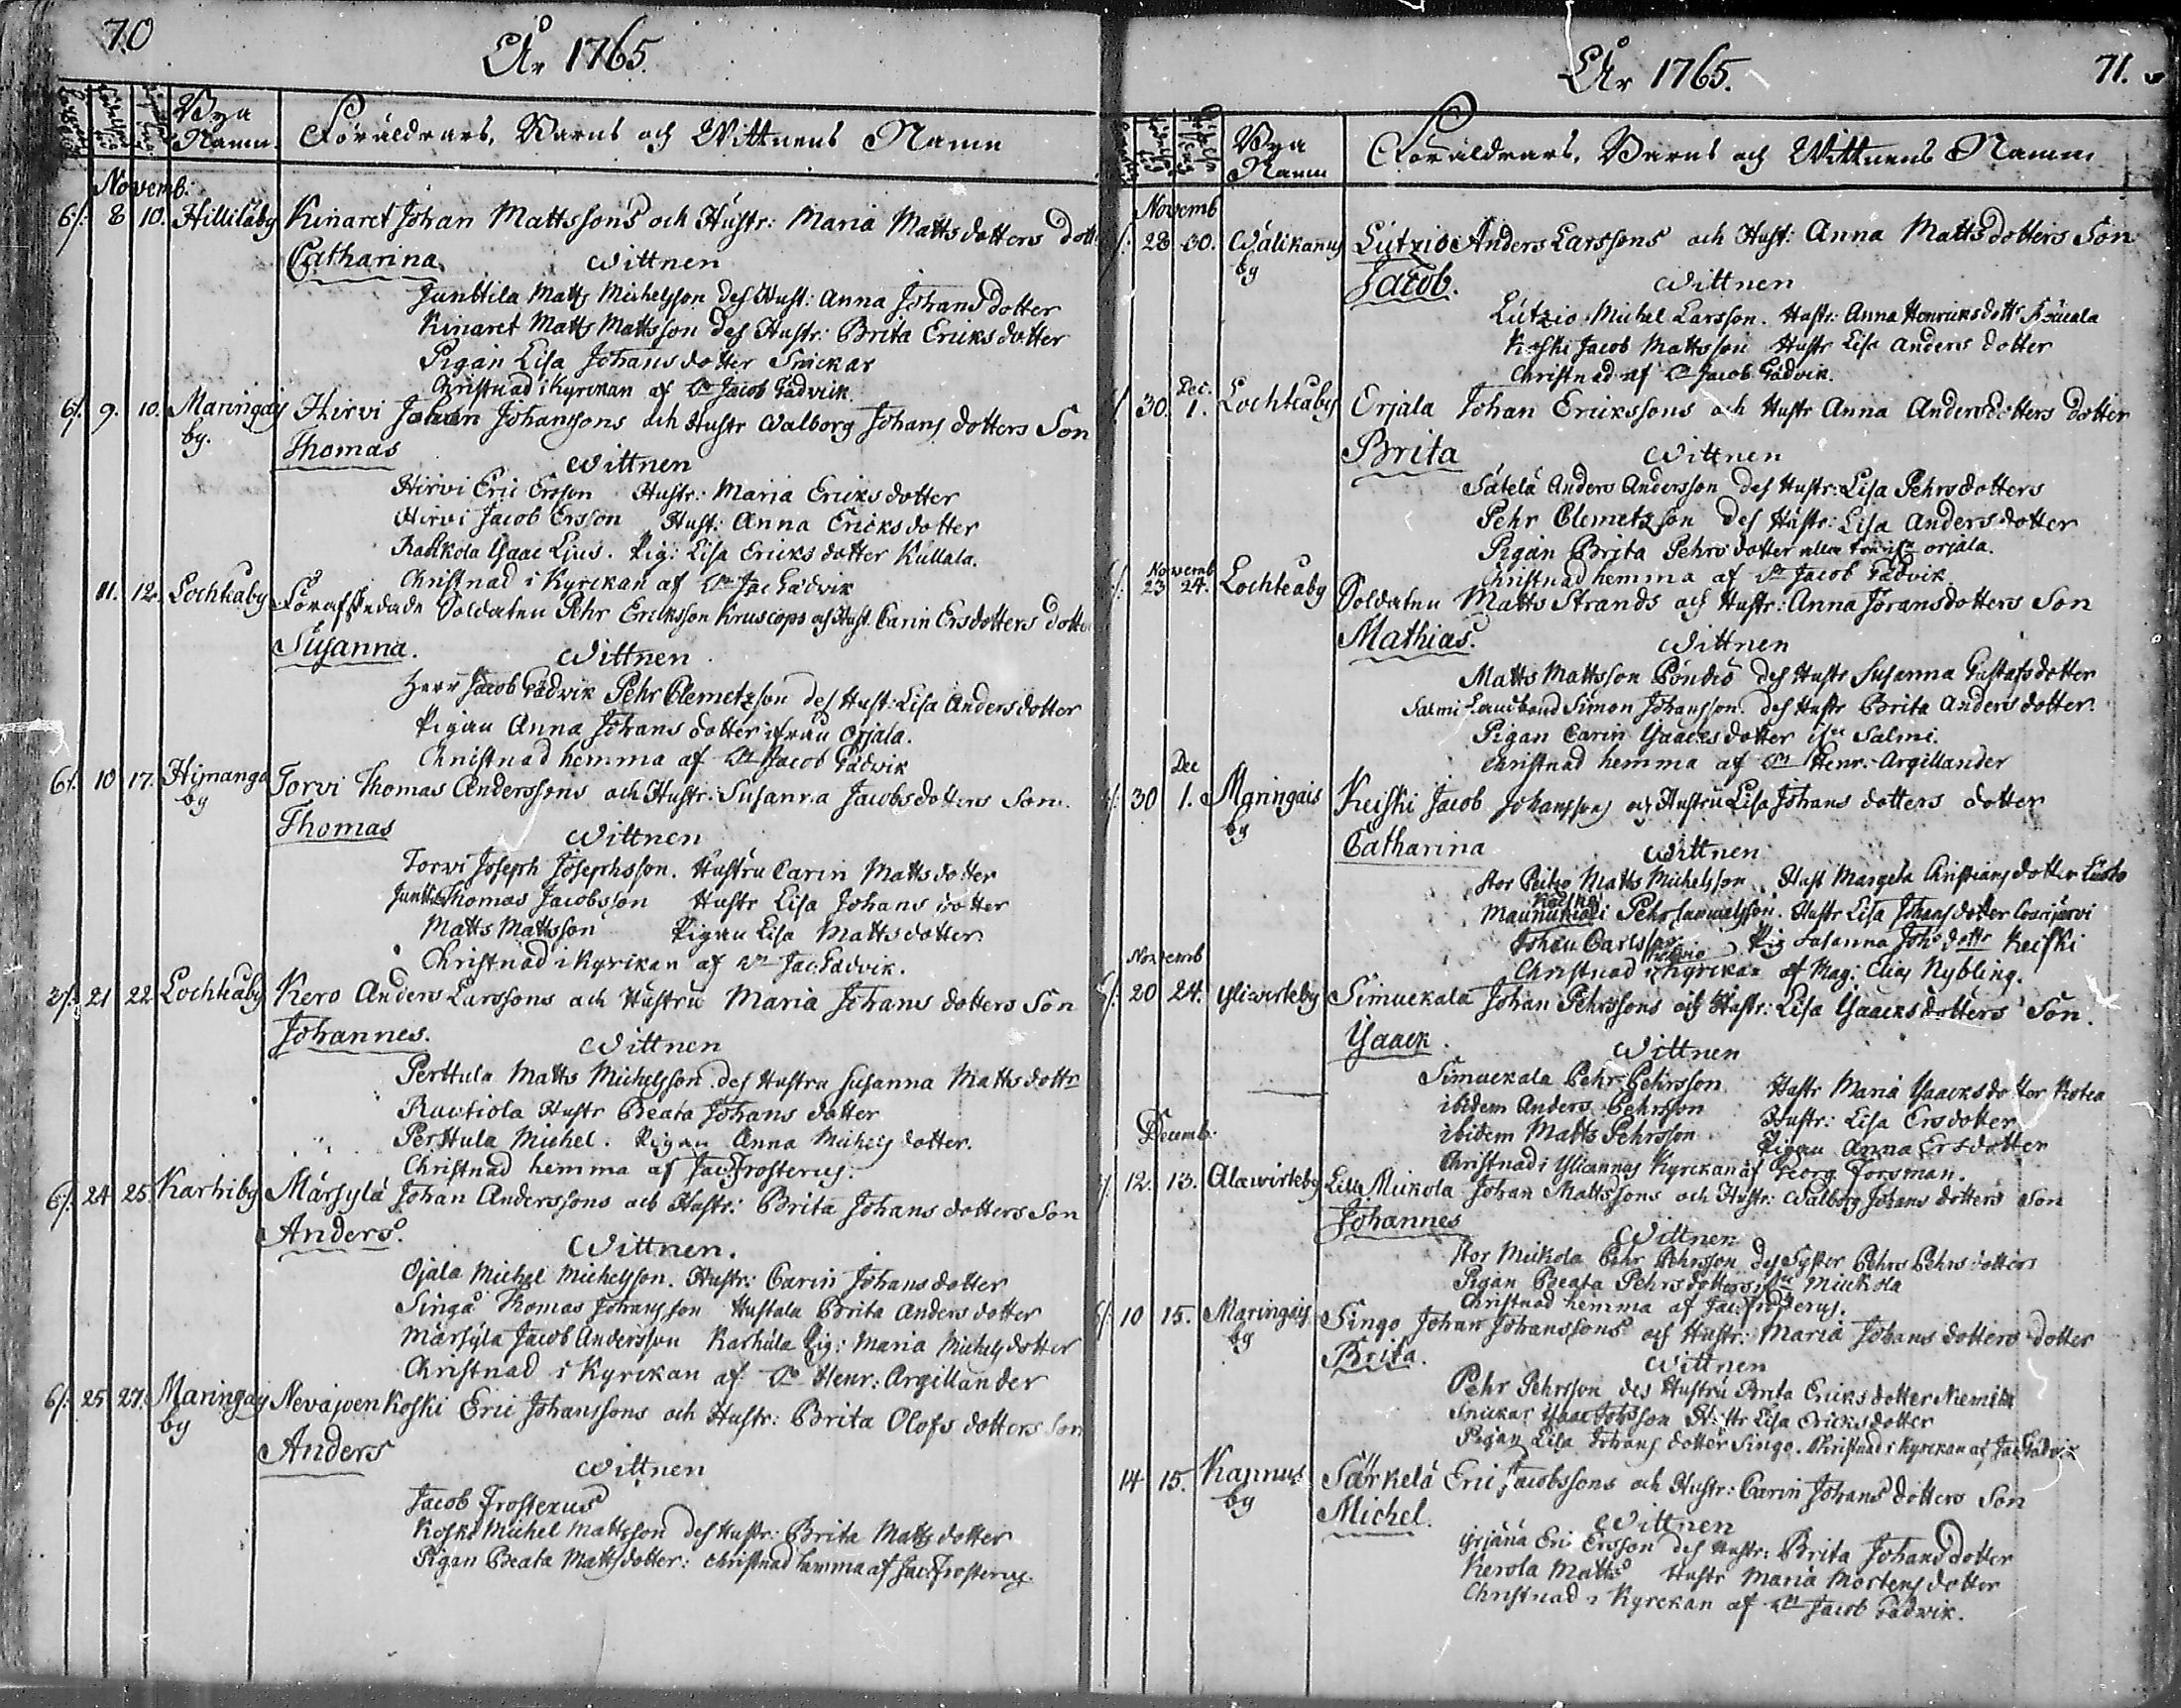 70
År 1765.
Bya
Namn.
Föräldrars, Barns och Wittnens Namn
Novemb:
6/: 8 10. Hillilaby Kinaret Johan Mattssons och Hustr: Maria Matts dotters dott
Catharina
Wittnen
Junttila Matts Michelsson des Hust: Anna Johans dotter
Kinaret Matts Mattsson des Hustr: Brita Ericks dotter
Pigan Lisa Johans dotter Snickar
Christnad i Kyrckan af Jacob Gadvik.
6/. 9. 10. Maringais by. Hirvi Johan Johanssons och Hustr Walborg Johans dotters Son
Thomas
Wittnen
Hirvi Eric Ersson Hustr: Maria Ericks dotter
Hirvi Jacob Ersson Hust: Anna Ericks dotter
Ysaac Pig: Lisa Ericks dotter Kullala.
Christnad i Kyrckan af Jac Gadvik
11. 12. Lochteaby Förafskedade Soldaten Pehr Ericksson Kruscops och Hust. Carin Ersdotters dotter
Susanna.
Wittnen
Herr Jacob Gadvik Pehr Clemetzson des Hust: Lisa Anders dotter
Pigan Anna Johans dotter ifrån Orjala.
Christnad hemma af Jacob Gadvik
6/. 10 17. Himanga by Torvi Thomas Anderssons och Hustr: Susanna Jacobs dotters Son.
Thomas
Wittnen
Torvi Joseph Josephsson. Hustru Carin Matts dotter
Thomas Jacobsson Hustr Lisa Johans dotter
Matts Mattsson Pigan Lisa Matts dotter
Christnad i Kyrckan af Jac: Gadvik.
21 22 Lochteaby Kero Anders Larssons och Hustru Maria Johans dotters Son
Johannes.
Wittnen
Perttula Matts Michelsson des Hustru Susanna Matts dottr
Rautiola Hustr Beata Johans dotter
Perttula Michel. Pigan Anna Michels dotter.
Christnad hemma af Jac: Frosterus.
6/: 24 25. Karhiby Märsylä Johan Anderssons och Hustr: Brita Johans dotters Son
Anders.
Wittnen.
Ojala Michel Michelsson. Hustr: Carin Johans dotter
Singå Thomas Johansson Hustala Brita Anders dotter
Märsyla Jacob Andersson Karhula Pig: Maria Michels dotter
Christnad i Kyrckan af Henr: Argillander
6/: 25 27. Maringais by Nevajoenkoski Eric Johanssons och Hustr: Brita Olofs dotters Son
Anders
Wittnen
Jacob Frosterus
Koski Michel Mattsson des Hustr: Brita Matts dotter
Pigan Beata Matts dotter: Christnad hemma af Jac: Frosterus
År 1765.
71.
Bya
Namn
Föräldrars, Barns och Wittnens Namn
Novemb
28 30. Wälikannus by Lutzio Anders Larssons och Hust: Anna Matts dotters Son
Jacob.
Wittnen
Lutzio Michel Larsson. Hustr: Anna Henricks dottr
Koski Jacob Mattsson Hustr Lisa Anders dotter
Christnad af Jacob Gadvik.
Dec.
30. 1. Lochteaby Orjala Johan Erickssons och Hustr Anna Andersdotters dotter
Brita
Wittnen
Sätelä Anders Andersson des Hustr: Lisa Pehrsdotters
Pehr Clemetzson des Hustr: Lisa Anders dotter
Pigan Brita Pehrs dotter orjala.
Christnad hemma af Jacob Gadvik.
Novemb
23 24. Lochteaby Soldaten Matts Strands och Hustr: Anna Joransdotters Son
Mathias.
Wittnen
Matts Mattsson Pöndiö des Hustr Susanna Gustafsdotter
Salmi Landbond Simon Johansson des Hustr Brita Anders dotter.
Pigan Carin Ysaacks dotter Salmi.
Christnad hemma af Henr. Argillander
Dec
30 1. Maringais by Keiski Jacob Johanssons och Hustru Lisa Johans dotters dotter
Catharina
Wittnen
Stor Peitzo Matts Michelsson Hust Margeta Christians dotter
Pehr Samuelsson. Hustr Lisa Johans dotter
Johan Carlsson Pig Susanna Johs dottr Keiski
Christnad i Kyrckan af Mag: Elias Nybling.
Novemb
20 24. Yliwirteby Simuckala Johan Pehrssons och Hustr: Lisa Ysaacks dotters Son.
Ysaack.
Wittnen
Simuckala Pehr Pehrsson Hustr Maria Ysaacks dotter
ibidem Anders Pehrsson Hustr: Lisa Ersdotter
ibidem Matts Pehrsson Pigan Anna Ersdotter
Christnad i Ylicannus Kyrckan af Georg Forsman.
Decemb:
12. 13. Alawirteby Lill Miekola Johan Mattssons och Hustr: Walborg Johans dotters Son
Johannes
Wittnen
Stor Miekola Pehr Pehrsson des Syster Pehrs dotters
Pigan Beata Pehrsdotters Miekola
Christnad hemma af Jac: Frosterus.
10 15. Maringais by Singo Johan Johanssons och Hustr: Maria Johans dotters dotter
Brita.
Wittnen
Pehr Pehrsson des Hustru Brita Ericks dotter Niemelä
Snickar Ysaac Johsson Hustr Lisa Ericksdotter
Pigan Lisa Johans dotter Singo. Christnad i Kyrckan af Jac: Gadvik
14 15. Kannus by Särkelä Eric Jacobssons och Hustr: Carin Johans dotters Son
Michel.
Wittnen
Yrjänä Eric Ersson des Hustr: Brita Johans dotter
Kerola Matts Hustr Maria Mortens dotter
Christnad i Kyrckan af Jacob Gadvik.